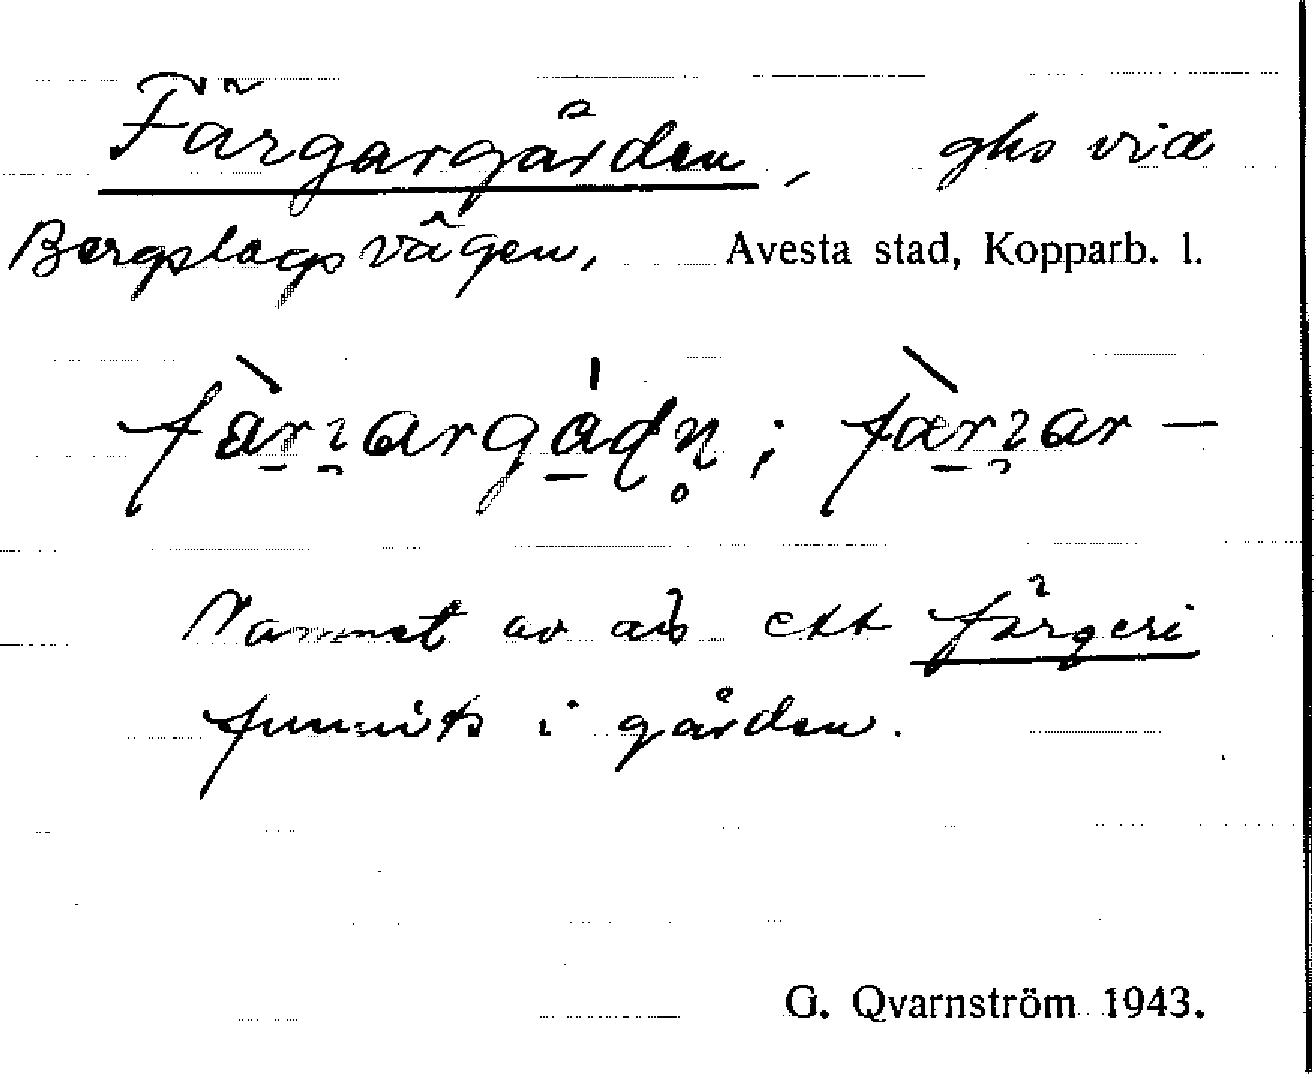 Färgargården, ghs vid
Bergslagsvägen, Avesta stad, Kopparb. l.
Namnet av att ett färgeri
funnits i gården.
G. Qvarnström 1943.